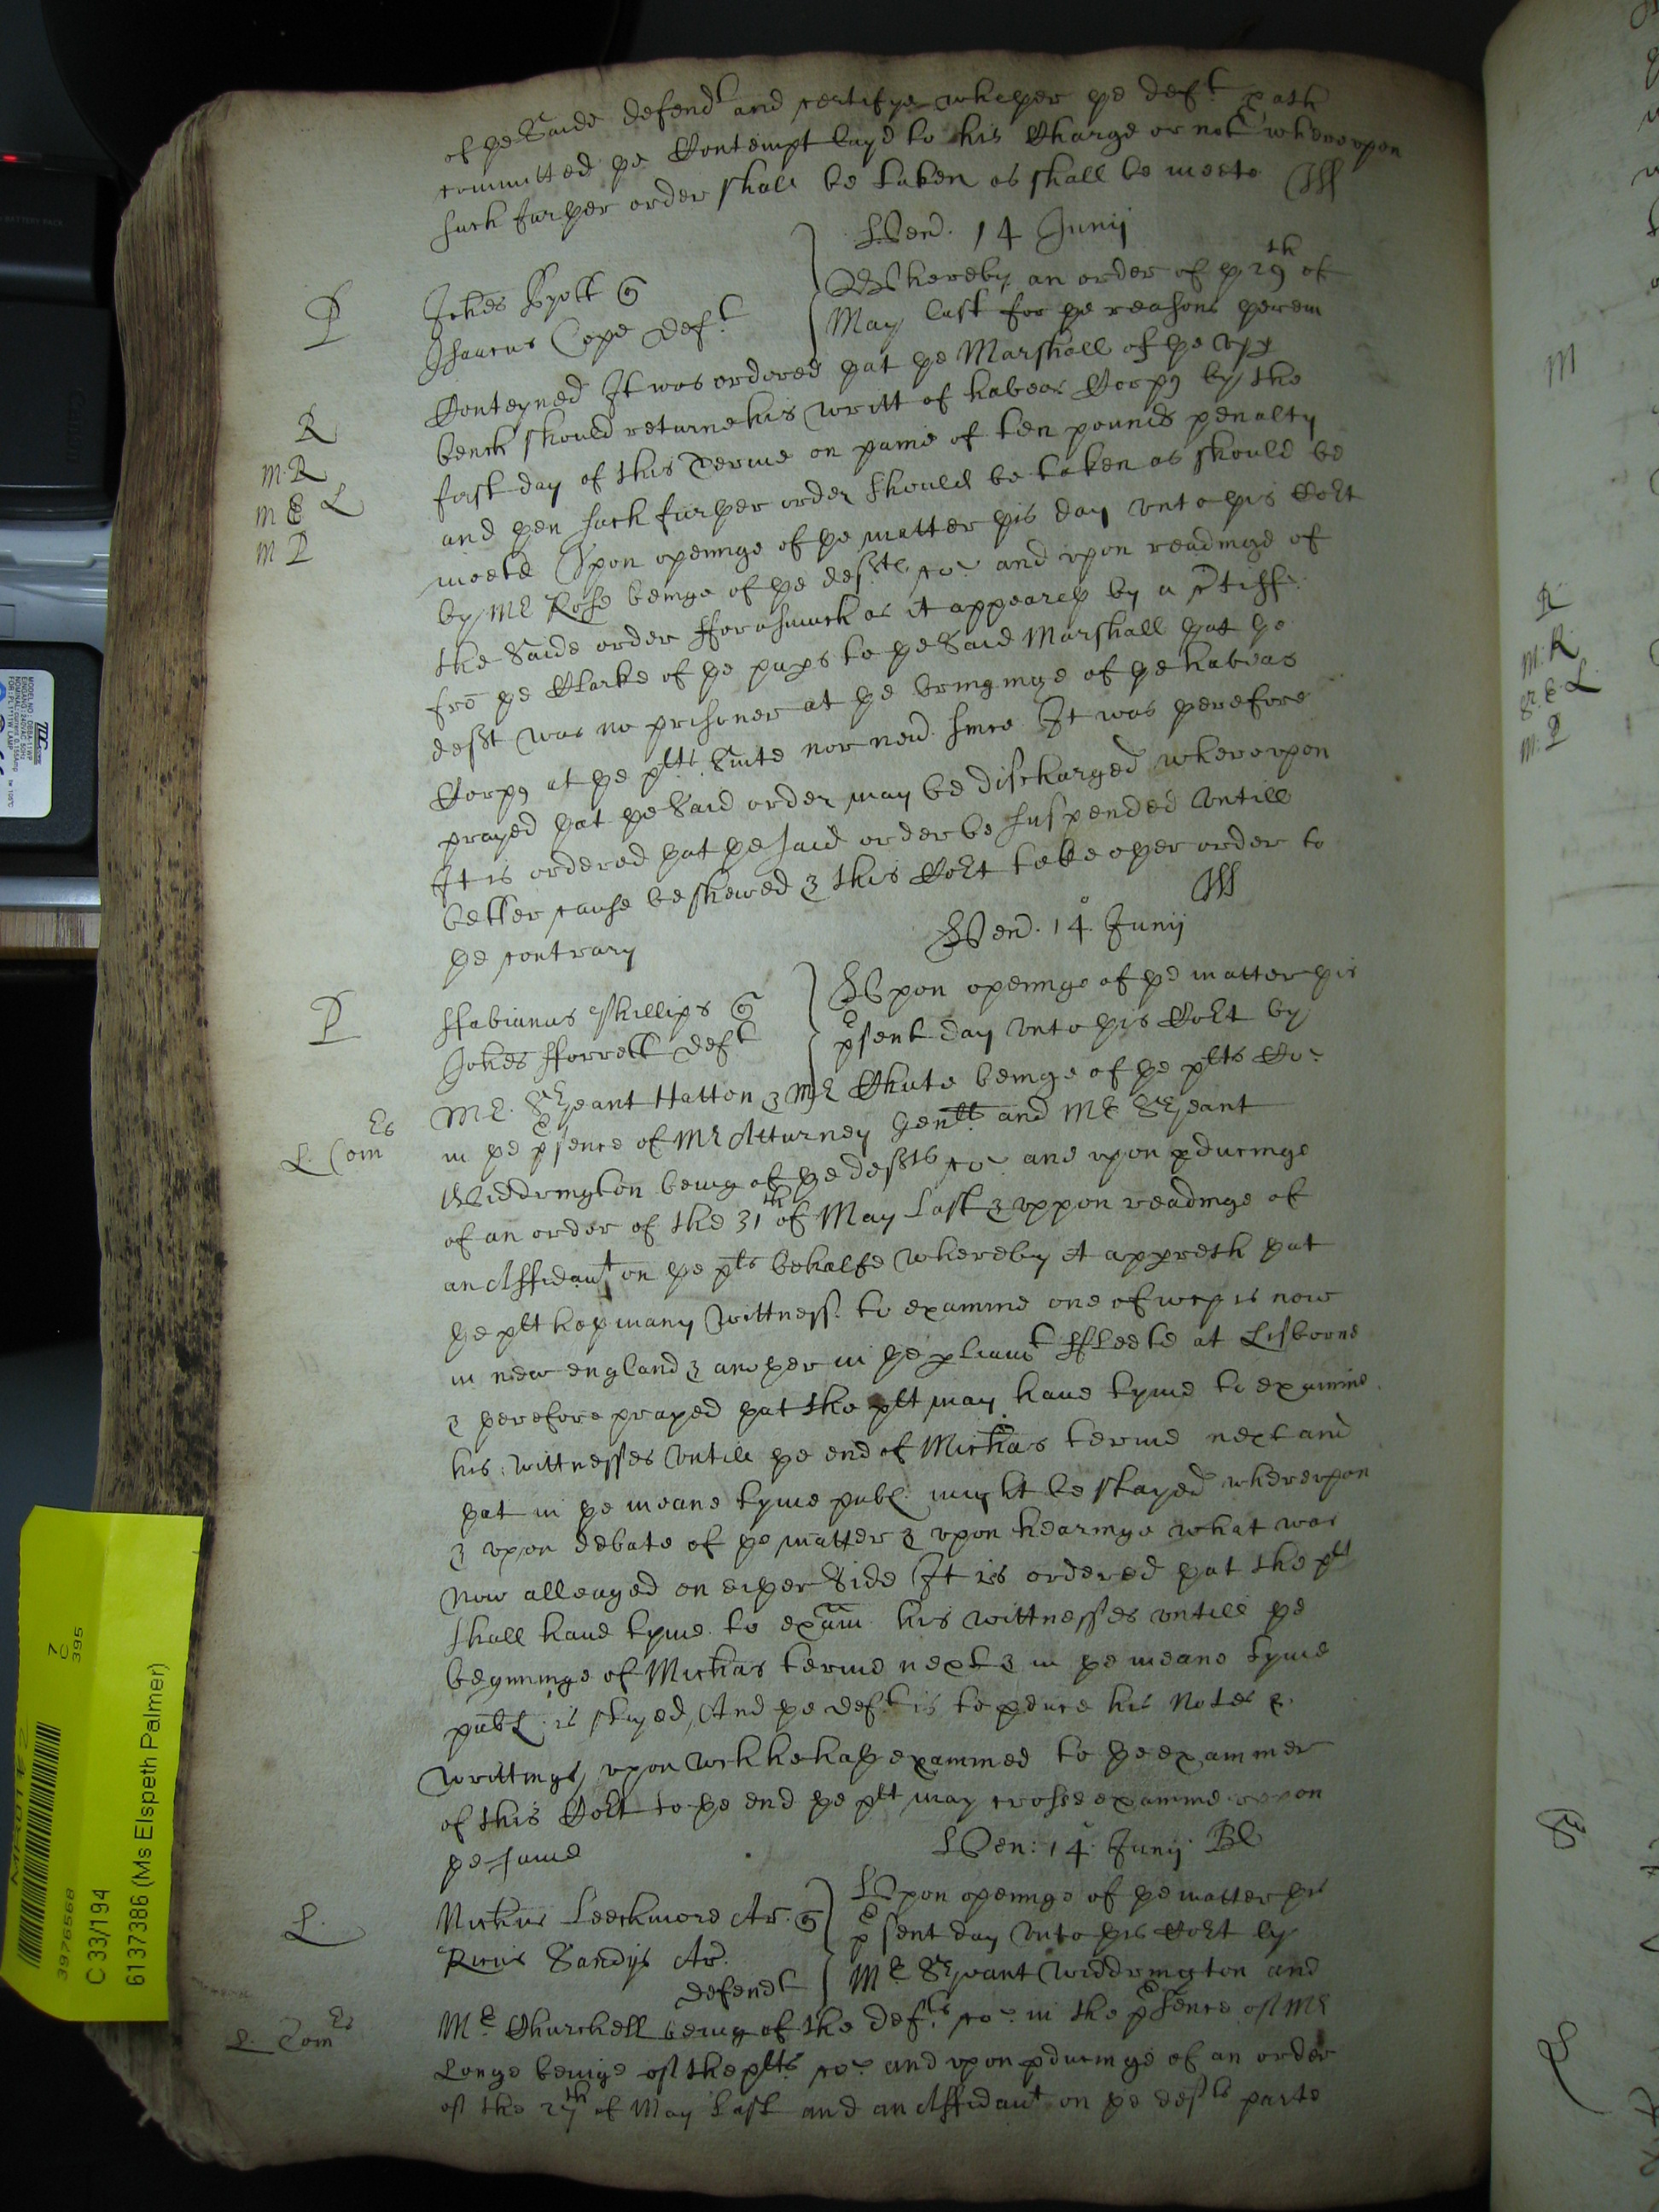 of þe Saide defendt and certifye whether þe deft hath
committed þe Contempt layd to his Charge or not whereupon
such further order shall be taken as shall be meete
Wen. 14 Junij
Johes
Cope deft
Whereby an order of þe 29th of
May last for þe reasons þerein
Conteyned It was ordered þat þe Marshall of þe upp
bench should returne his writt of habeas Corpus by the
first day of this Terme on paine of ten pounds penalty
and þen such further order should be taken as should be
meete Upon openinge of þe matter þis day unto þis Cort
by Mr Rose beinge of þe defts co: and upon readinge of
the Saide order fforasmuch as it appeareth by a Ctiff.
frõ þe Clarke of þe paps to þe Said Marshall þat þe
deft was no prisoner at þe bringinge of þe habeas
Corpus at þe plts Suite nor new since It was þerefore
prayed þat þe Said order may be discharged whereupon
It is ordered þat þe said order be suspended untill
better cause be shewed & this Cort take oþer order to
þe contrary
Wen. 14° Junij
P
ffabianus Phillips
Johes fforrett deft
Upon openinge of þe matter þis
psent day unto þis Cort by
Mr. Srjeant Hatton & Mr Chute beinge of þe plts Co:
in þe psence of Mr Atturney Genll and Mr Srjeant
Widdrington being of þe defts co: and upon pducinge
of an order of the 31th of May last & uppon readinge of
an Affidavt on þe plts behalfe whereby it appreth þat
þe plt hath many wittness. to examine one of wch is now
in new england & anoþer in þe pliamt ffleete at Lisborne
& þerefore prayed þat the plt may have tyme to examine
his wittnesses untill þe end of Michas terme next and
þat in þe meane tyme publ. might be stayed whereupon
& upon debate of þe matter & upon hearinge what was
now alleaged on eiþer Side It is ordered þat the plt
shall have tyme to exam his wittnesses untill þe
beginninge of Michas terme next & in þe meane tyme
publ. is stayed, And þe deft is to pduce his Notes &
writtings upon wch he hath examined to þe examiner
of this Cort to þe end þe plt may crosse examine upon
þe same
L. Com
Wen: 14° Junij
L.
Nichus Leechmore Ar.
Ricus Sandys Ar.
defendt
Upon openinge of þe matter þis
psent day unto þis Cort by
Mr Srjeant Widdrington and
Mr Churchell being of the defts co: in the psence of Mr
Longe beinge of the plts co: and upon pducinge of an order
of the 27th of May last and an Affidavt on þe defts parte
L. Com
R
M. R
M E L
M P
R
M. R
M. P
M
TDC
MODEL NO.: DB8A-11WP
C 33/194
6137386 (Ms Elspeth Palmer)
3976568
7
C
395
Canon
BATTERY PACK